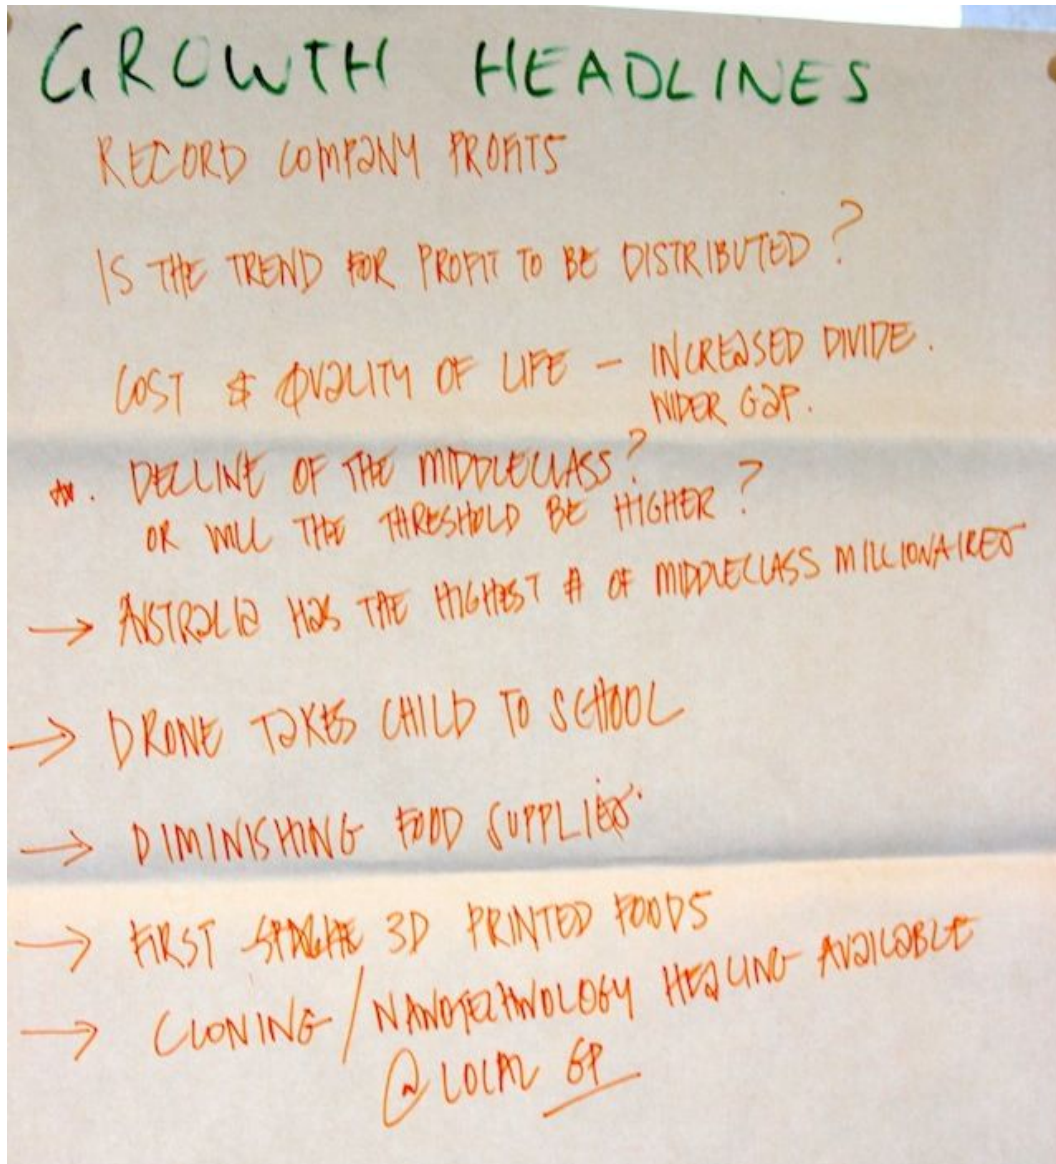 GROWTH HEADLINES
RECORD COMPANY PROFITS
IS THE TREND FOR PROFIT TO BE DISTRIBUTED?
COST & QUALITY OF LIFE – INCREASED DIVIDE.
WIDER GAP.
DECLINE OF THE MIDDLECLASS?
OR WILL THE THRESHOLD BE HIGHER?
→ AUSTRALIA HAS THE HIGHEST # OF MIDDLECLASS MILLIONAIRES
→ DRONE TAKES CHILD TO SCHOOL
→ DIMINISHING FOOD SUPPLIES.
→ FIRST 3D PRINTED FOODS
→ CLONING/NANOTECHNOLOGY HEALING AVAILABLE
@ LOCAL GP